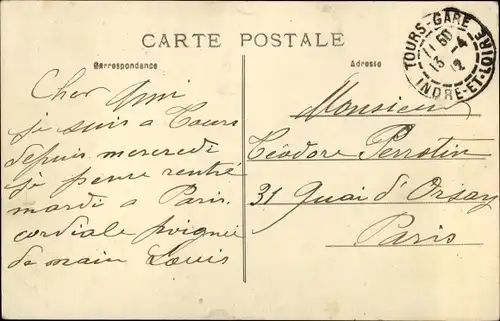 CARTE POSTALE
Correspondance
Adresse
TOURS-GARE
11 50
13 - 4
12
INDRE-ET-LOIRE
Cher Ami
je suis a Tours
depuis mercredi
je pense rentré
mardi a Paris.
cordiale poignée
de main Louis
Monsieur
Téodore Perrotin
31 Quai d'Orsay
Paris